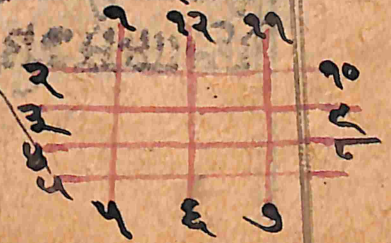 १ १२ ११
२ १०
३ ९
४ ८
५
५ ६ ७